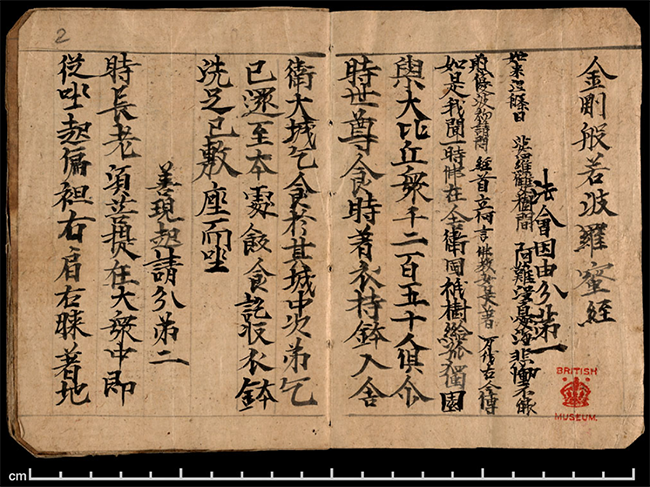 2
金剛般若波羅蜜經
法會因由分第一
如來涅槃日 娑羅雙樹間 阿難沒憂海 悲慟不能
前優波初請問 經首立何言 佛教如是著 万代古今傳
如是我聞一時佛在舍衛國祇樹給孤獨園
與大比丘衆千二百五十人俱尒
時世尊食時著衣持鉢入舍
衛大城乞食於其城中次弟乞
已還至本處飯食訖収衣鉢
洗足已敷座而坐
善現起請分弟二
時長老須菩提在大衆中即
從坐起偏袒右肩右膝著地
BRITISH
MUSEUM.
cm